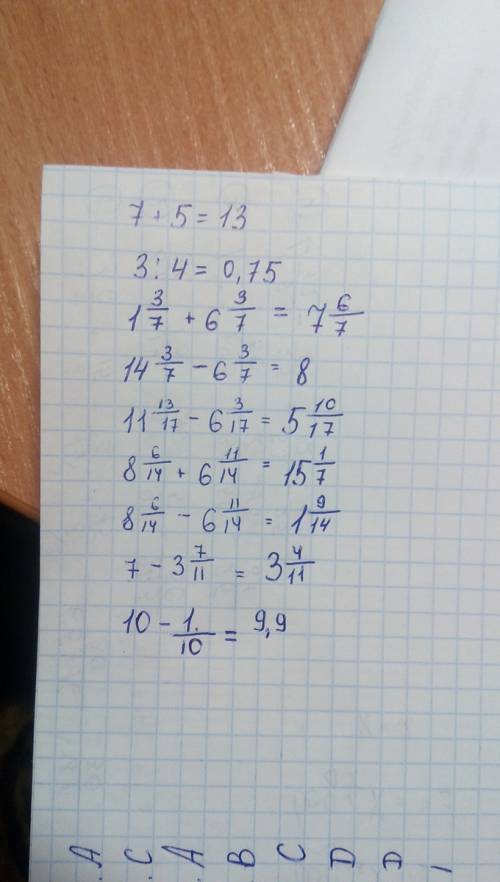 7 + 5 = 13
3 : 4 = 0,75
1 3/7 + 6 3/7 = 7 6/7
14 3/7 - 6 3/7 = 8
11 13/17 - 6 3/17 = 5 10/17
8 6/14 + 6 11/14 = 15 1/7
8 6/14 - 6 11/14 = 1 9/14
7 - 3 7/11 = 3 4/11
10 - 1./10 = 9,9
.A .C A B C D D 1